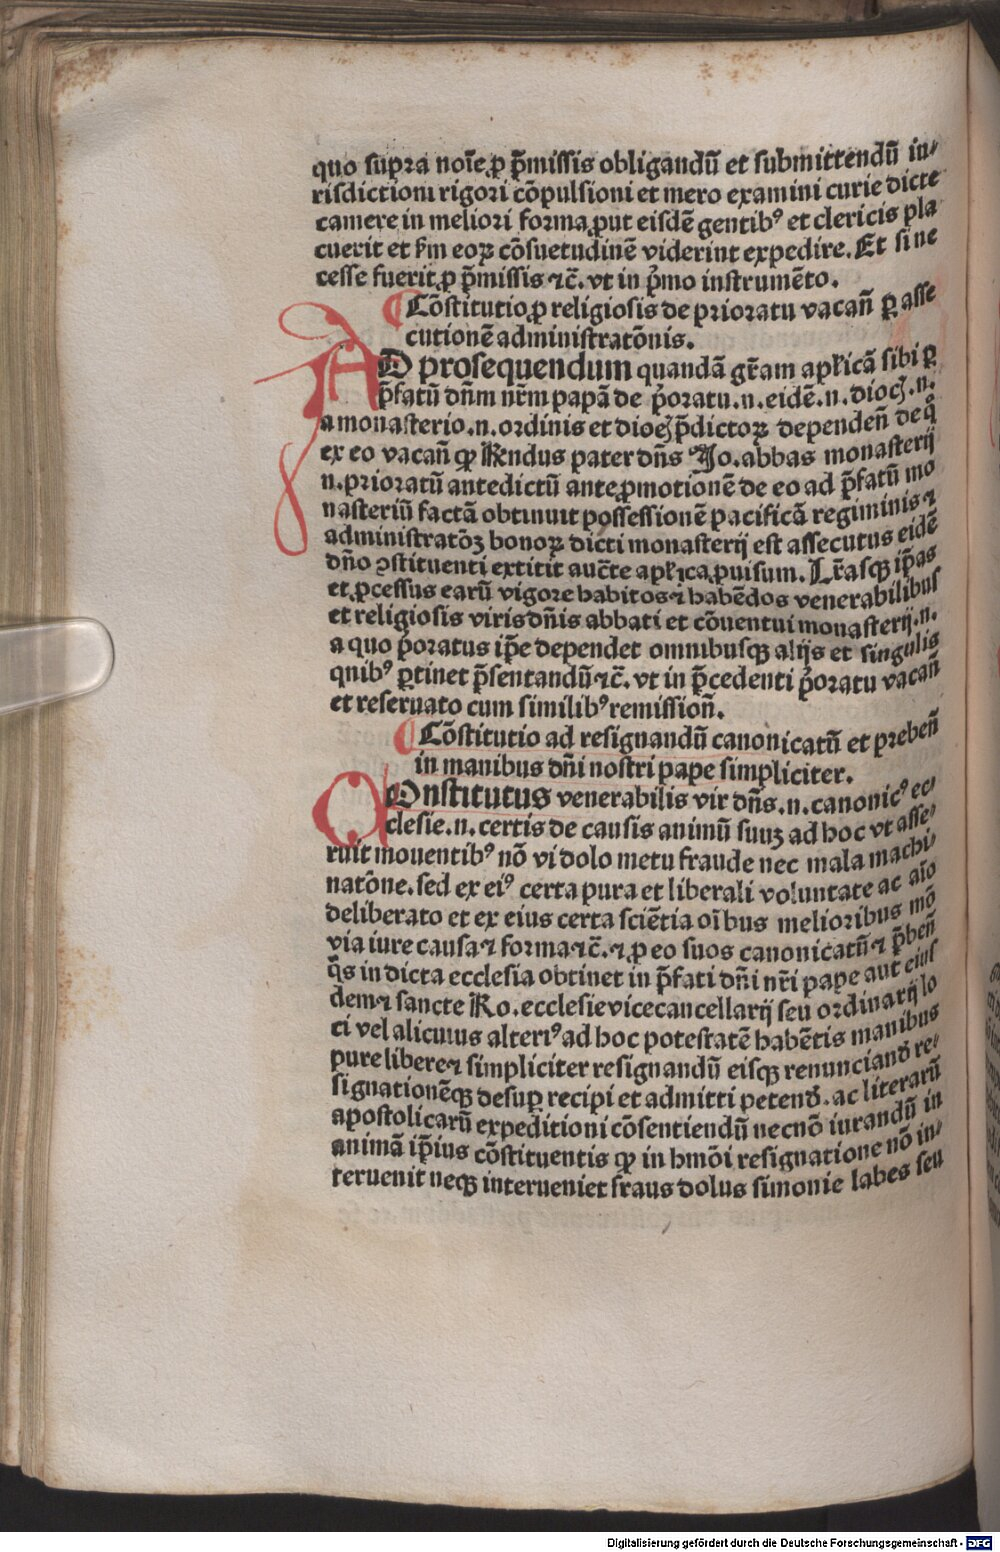 quo supra noīe ꝓ p̄missis obligandū et submittendū iu⸗
risdictioni rigori cōpulsioni et mero examini curie dicte
camere in meliori forma ꝓut eisdē gentibꝰ et clericis pla
cuerit et ẜm eoꝝ cōsuetudinē viderint expedire. Et si ne
cesse fuerit ꝓ p̄missis ⁊c̄. vt in pͥmo instrumēto.
¶ Cōstitutio ꝓ religiosis de prioratu vacan̄ ꝑ asse
cutionē administratōnis.
AD prosequendum quandā gr̄am apl'icā sibi ꝑ
p̄fatū dn̄m nr̄m papā de pͥoratu .n. eidē .n. dioc̄. n.
a monasterio .n. ordinis et dioc̄ p̄dictoꝝ dependen̄ de qͦ
ex eo vacan̄ ꝙ Rendus pater dn̄s Jo. abbas monasterij
n. prioratū antedictū ante ꝓmotionē de eo ad p̄fatū mo
nasteriū factā obtinuit possessionē pacificā regiminis ⁊
administratōꝫ bonoꝝ dicti monasterij est assecutus eidē
dn̄o ꝯstituenti extitit auc̄te apl'ica ꝓuisum. Lr̄asqꝫ ip̄as
et ꝓcessus earū vigore habitos ⁊ habēdos venerabilibus
et religiosis viris dn̄is abbati et cōuentui monasterij .n.
a quo pͥoratus ip̄e dependet omnibusqꝫ alijs et singulis
quibꝰ ꝑtinet p̄sentandū ⁊c̄. vt in p̄cedenti pͥoratu vacan̄
et reseruato cum similibꝰ remission̄.
¶ Cōstitutio ad resignandū canonicatū et preben̄
in manibus dn̄i nostri pape simpliciter.
COnstitutus venerabilis vir dn̄s .n. canonicꝰ ec⸗
clesie .n. certis de causis animū suuꝫ ad hoc vt asse⸗
ruit mouentibꝰ nō vi dolo metu fraude nec mala machi⸗
natōne. sed ex eiꝰ certa pura et liberali voluntate ac aīo
deliberato et ex eius certa sciētia oībus melioribus mō
via iure causa ⁊ forma ⁊c̄. ⁊ ꝓ eo suos canonicatū ⁊ p̄ben̄
q̄s in dicta ecclesia obtinet in p̄fati dn̄i nr̄i pape aut eius
dem ⁊ sancte Ro. ecclesie vicecancellarij seu ordinarij lo
ci vel alicuius alteriꝰ ad hoc potestatē habētis manibus
pure libere ⁊ simpliciter resignandū eisqꝫ renunciand̄ re⸗
signationēqꝫ desuꝑ recipi et admitti petend̄. ac literarū
apostolicarū expeditioni cōsentiendū necnō iurandū in
animā ip̄ius cōstituentis ꝙ in hmōi resignatione nō in⸗
teruenit neqꝫ interueniet fraus dolus simonie labes seu
Digitalisierung gefördert durch die Deutsche Forschungsgemeinschaft - DFG